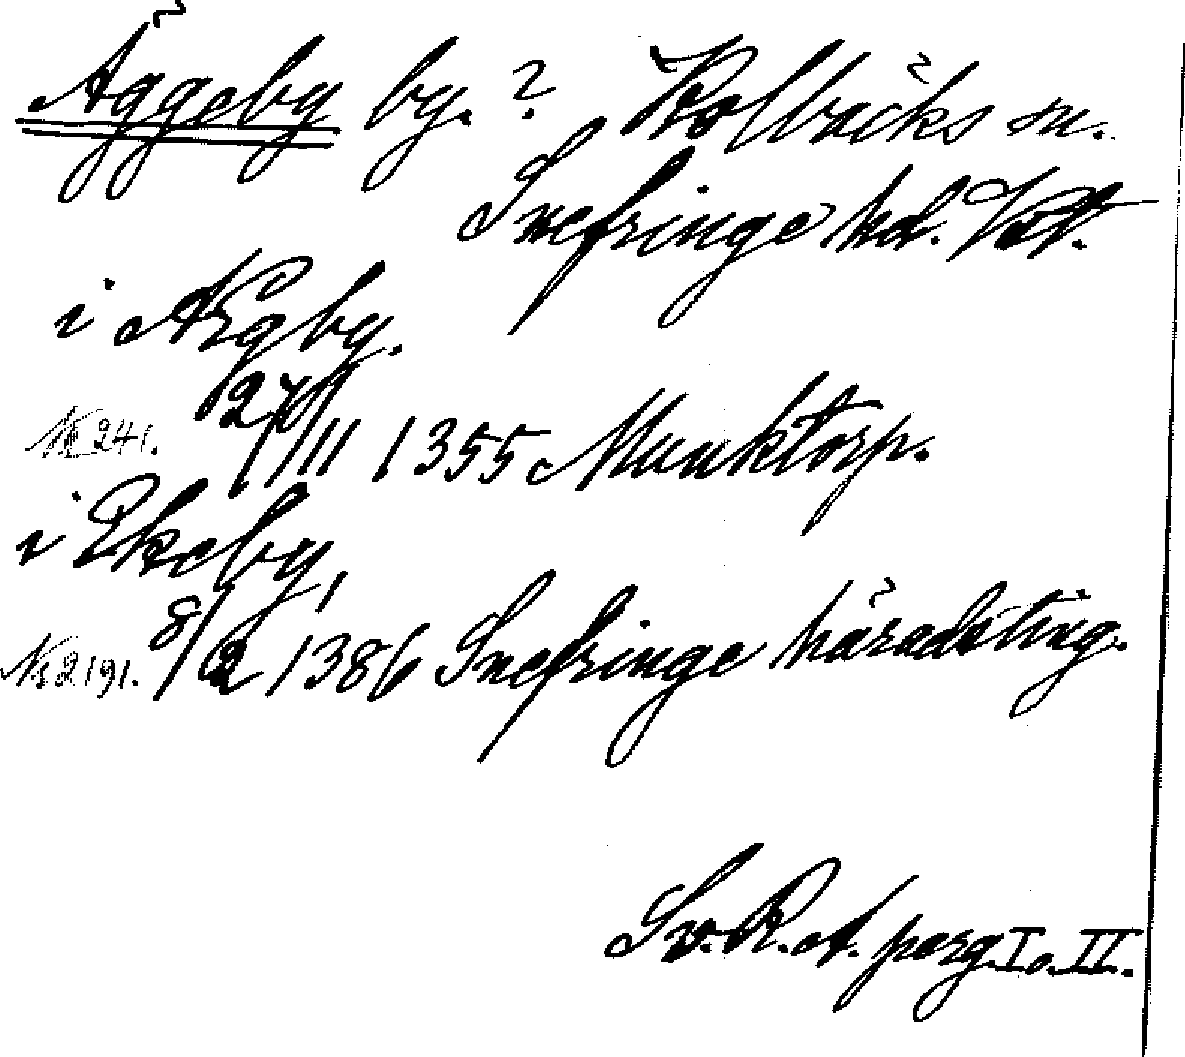 Äggeby by. ? Kolbäcks sn.
Snefringe hd. Vstm.
i Ægby.
No 241. 27/11 1355 Munktorp.
i Ekeby,
No 2191. 8/2 1386 Snefringe häradsting.
Sv. R. A. perg. I o. II.